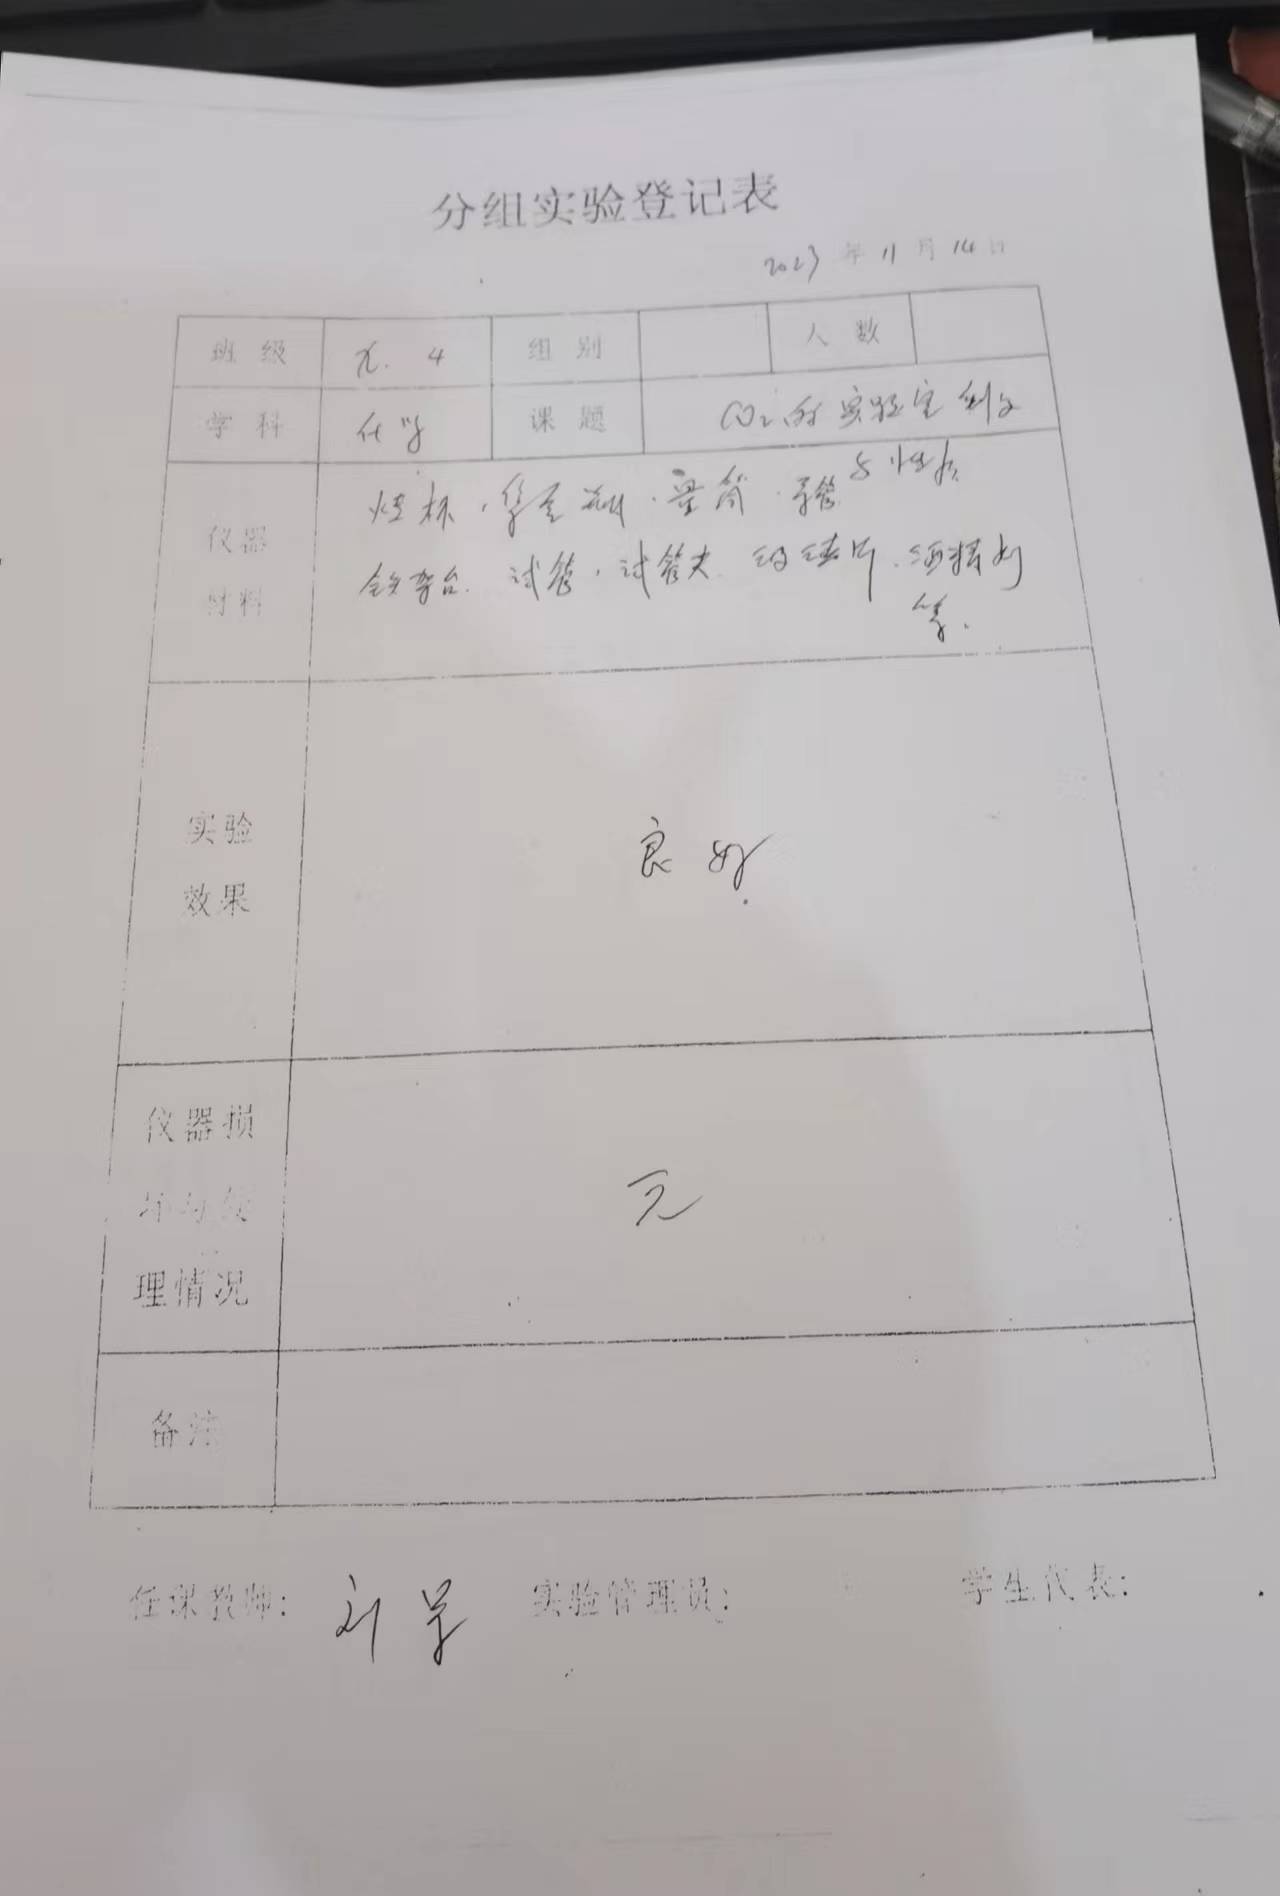 分组实验登记表
2023年11月14日
班级 九.4 组别 人数
学科 化学 课题 CO₂的实验室制取
与性质
仪器材料 烧杯.集气瓶.量筒.导管
铁架台.试管.试管夹.玻璃片.酒精灯
等.
实验效果 良好.
仪器损坏与处理情况 无
备注
任课教师: 刘 实验管理员: 学生代表: